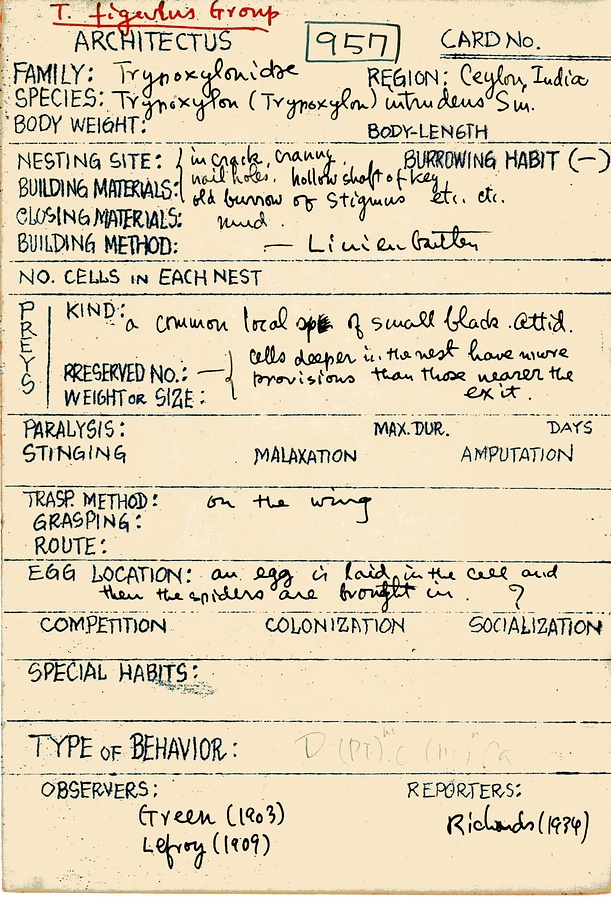 T. figulus Group
ARCHITECTUS 957 CARD No.
FAMILY: Trypoxylonidae REGION: Ceylon, India
SPECIES: Trypoxylon (Trypoxylon) intrudens Sm.
BODY WEIGHT: BODY-LENGTH
NESTING SITE: in cracks, cranny, BURROWING HABIT (—)
BUILDING MATERIALS: nail holes, hollow shaft of key
old burrow of Stigmus etc. etc.
CLOSING MATERIALS: mud.
BUILDING METHOD: —
NO. CELLS IN EACH NEST
PREYS
KIND: a common local sp of small black attid.
cells deeper in the nest have more
PRESERVED NO.: — provisions than those nearer the
WEIGHT OR SIZE: exit.
PARALYSIS: MAX. DUR. DAYS
STINGING MALAXATION AMPUTATION
TRASP. METHOD: on the wing
GRASPING:
ROUTE:
EGG LOCATION: an egg is laid in the cell and
then the spiders are brought in. ?
COMPETITION COLONIZATION SOCIALIZATION
SPECIAL HABITS:
TYPE OF BEHAVIOR:
OBSERVERS: REPORTERS:
Green (1903)
Lefroy (1909) Richards (1934)